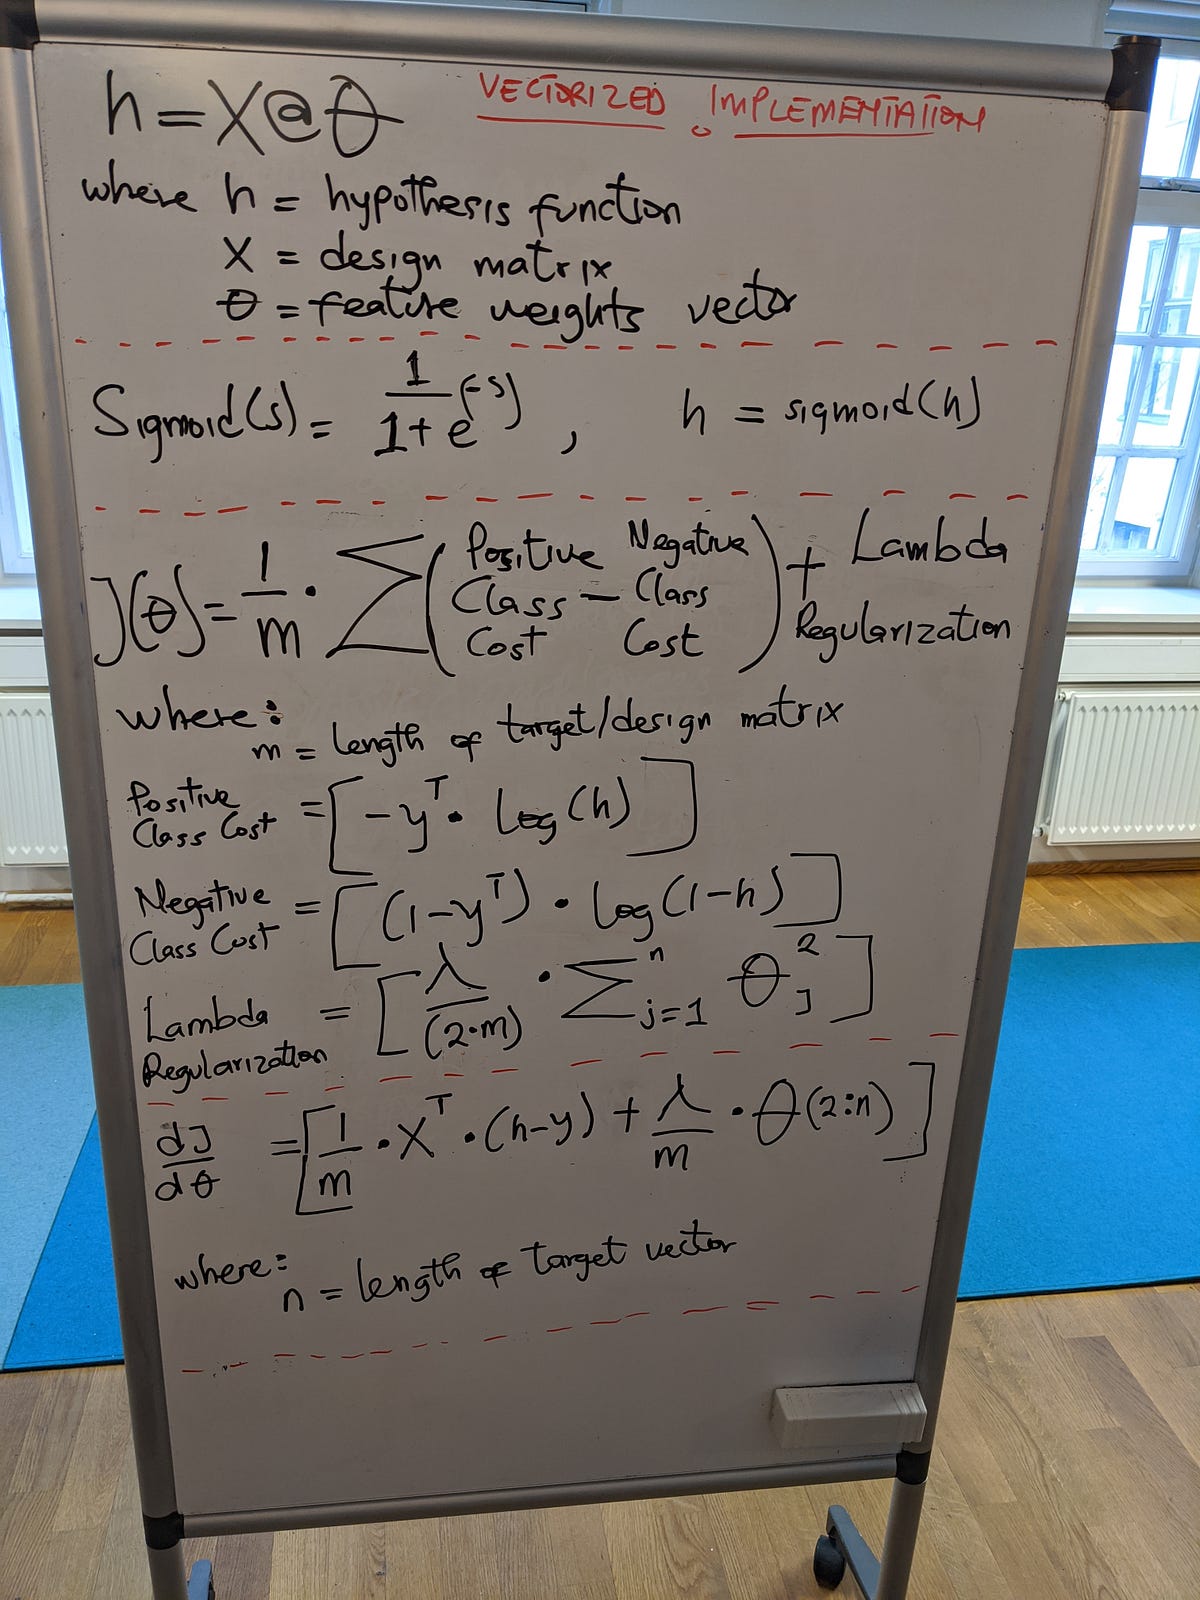 h = X@θ
VECTORIZED IMPLEMENTATION
where h = hypothesis function
X = design matrix
θ = feature weights vector
Sigmoid(s) = 1/(1+e^(-s)) , h = sigmoid(h)
J(θ) = 1/m · Σ(Positive Class Cost − Negative Class Cost) + Lambda Regularization
where:
m = length of target/design matrix
Positive Class Cost = [-y^T · log(h)]
Negative Class Cost = [(1-y^T) · log(1-h)]
Lambda Regularization = [λ/(2·m) · Σ^n_j=1 θ_J^2]
dJ/dθ = [1/m · X^T · (h-y) + λ/m · θ(2:n)]
where:
n = length of target vector